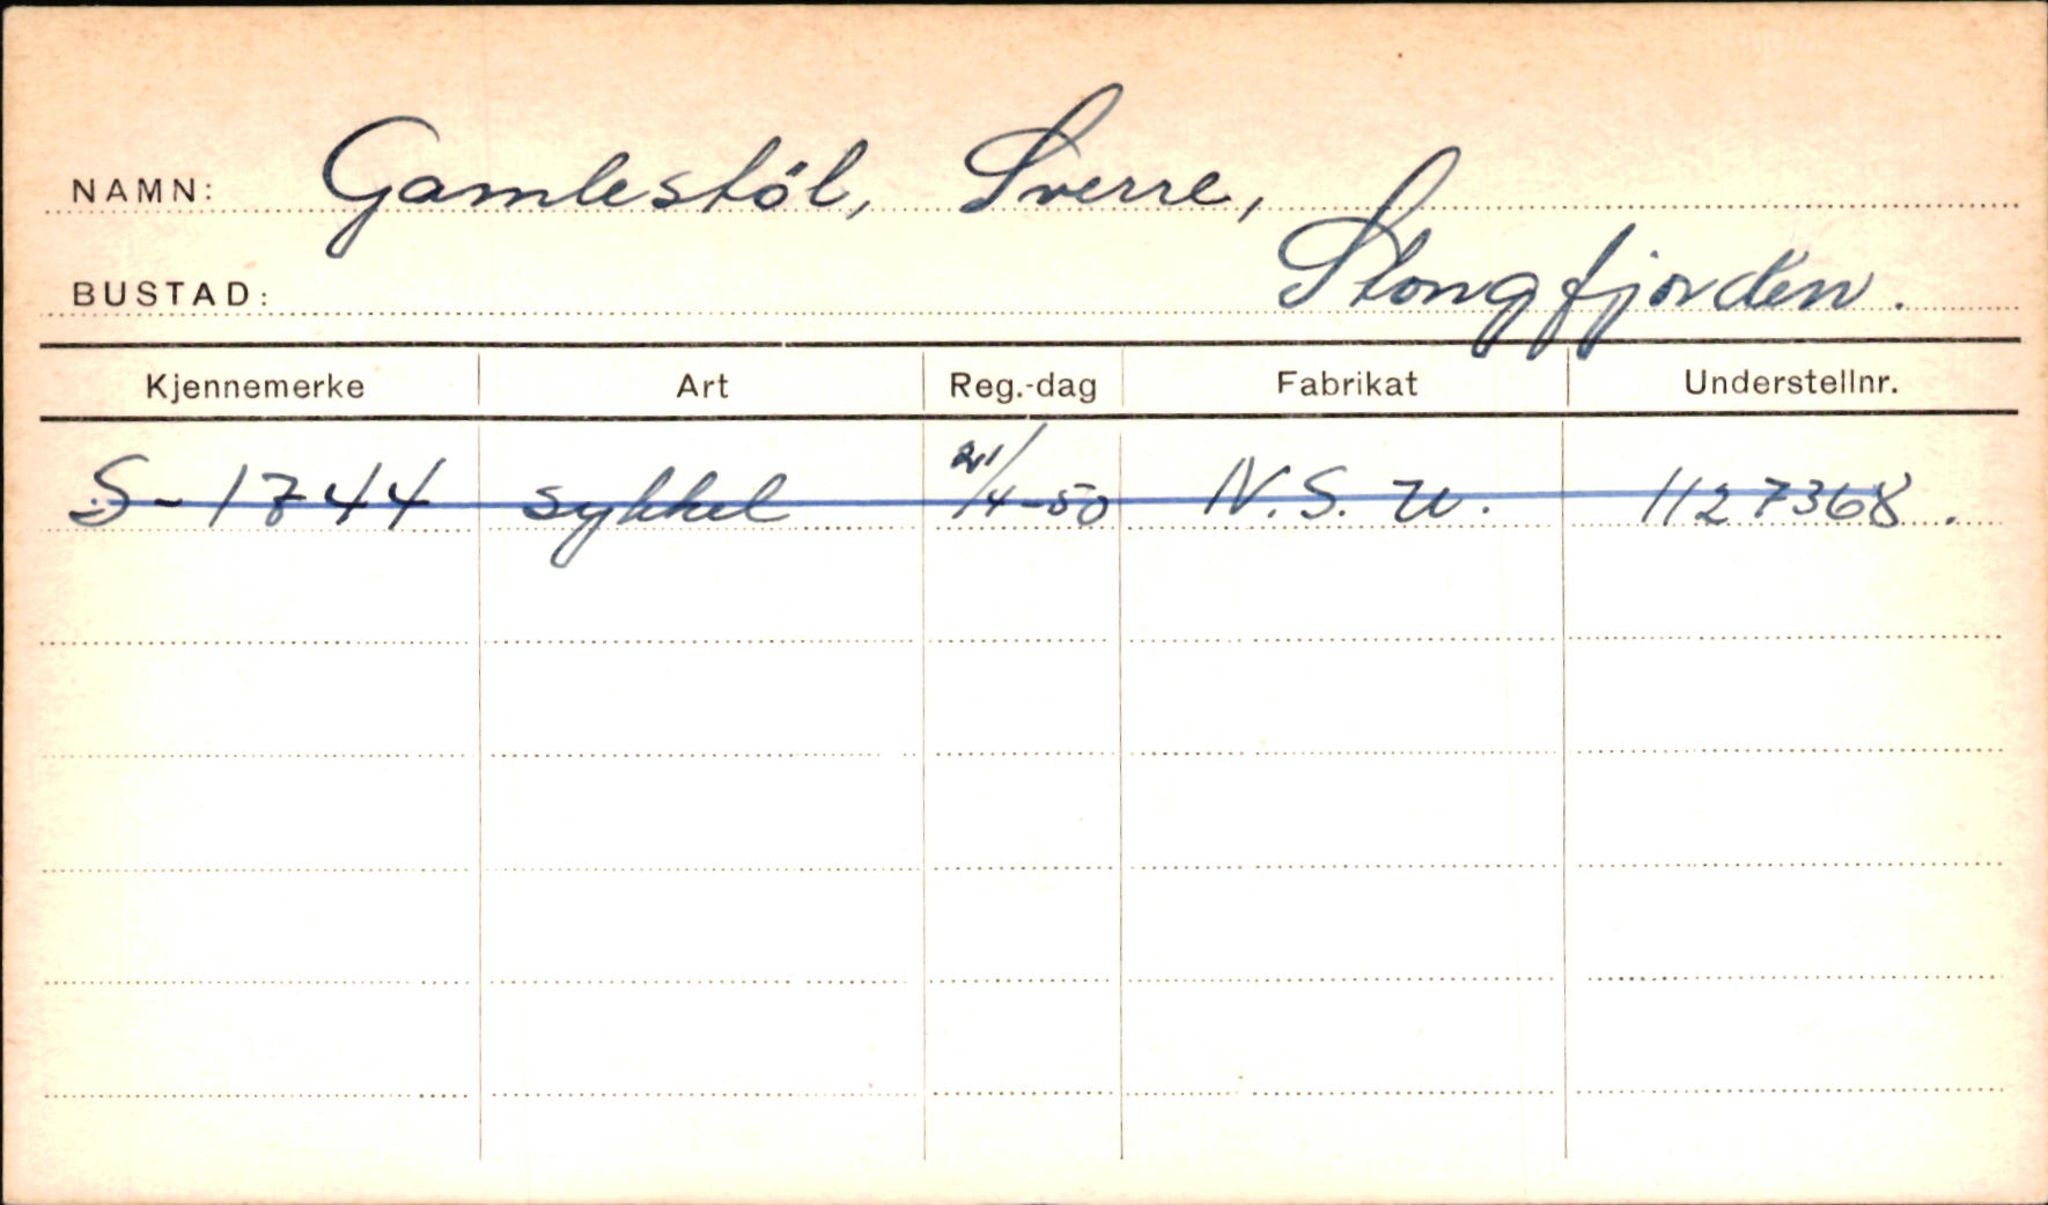 NAMN: Gamlestöl, Sverre,
BUSTAD: Stongfjorden.
Kjennemerke Art Reg.-dag Fabrikat Understellnr.
S-1744 sykkel 21/4-50 N.S.U. 1127368.